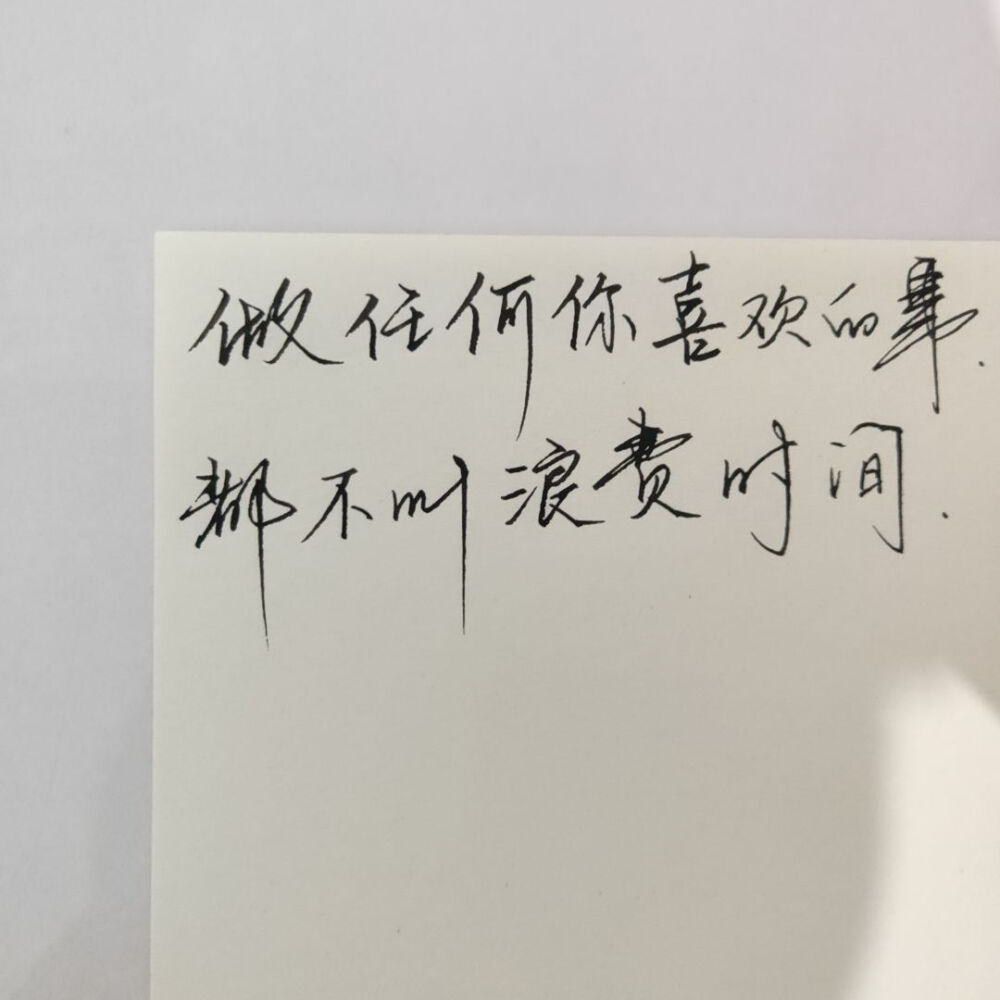 做任何你喜欢的事.
都不叫浪费时间.